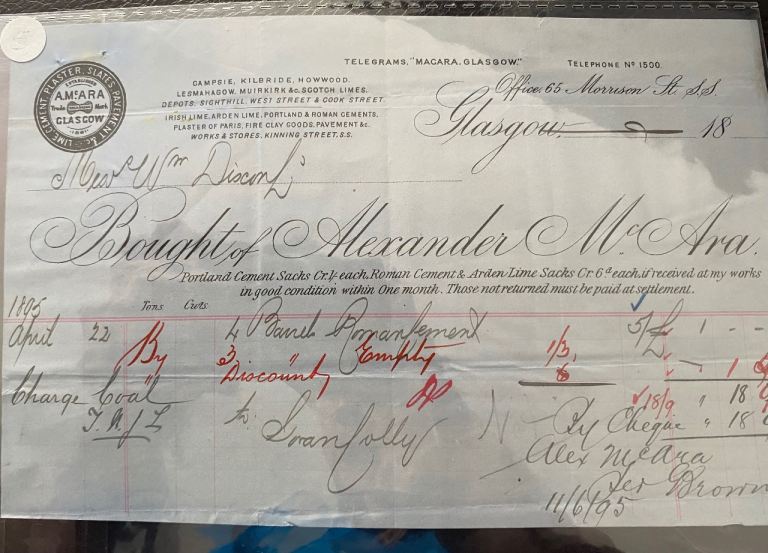 TELEGRAMS, "MACARA, GLASGOW."
TELEPHONE Nº 1500.
LIME, CEMENT, PLASTER, SLATES, PAVEMENT &c.
ESTABLISHED
A.McARA
Trade Mark
GLASGOW
CAMPSIE, KILBRIDE, HOWWOOD,
LESMAHAGOW, MUIRKIRK &c. SCOTCH LIMES.
DEPOTS, SIGHTHILL, WEST STREET & COOK STREET.
IRISH LIME, ARDEN LIME, PORTLAND & ROMAN CEMENTS,
PLASTER OF PARIS, FIRE CLAY GOODS, PAVEMENT &c.
WORKS & STORES, KINNING STREET, S.S.
Office: 65 Morrison St. S.S.
Glasgow 18
Messrs Wm Dixon Ld
Bought of Alexander McAra.
Portland Cement Sacks Cr. 1/- each, Roman Cement & Arden Lime Sacks Cr. 6d each, if received at my works
in good condition within One month. Those not returned must be paid at settlement.
1895 Tons Cwts
April 22 4 Barrels Roman Cement 5/ £ 1 - -
By 3 " Empty 1/3
Discount 6 1
Charge Coal 18/9 " 18 9
By Cheque " 18 9
Alex McAra
Per Brown
11/6/95